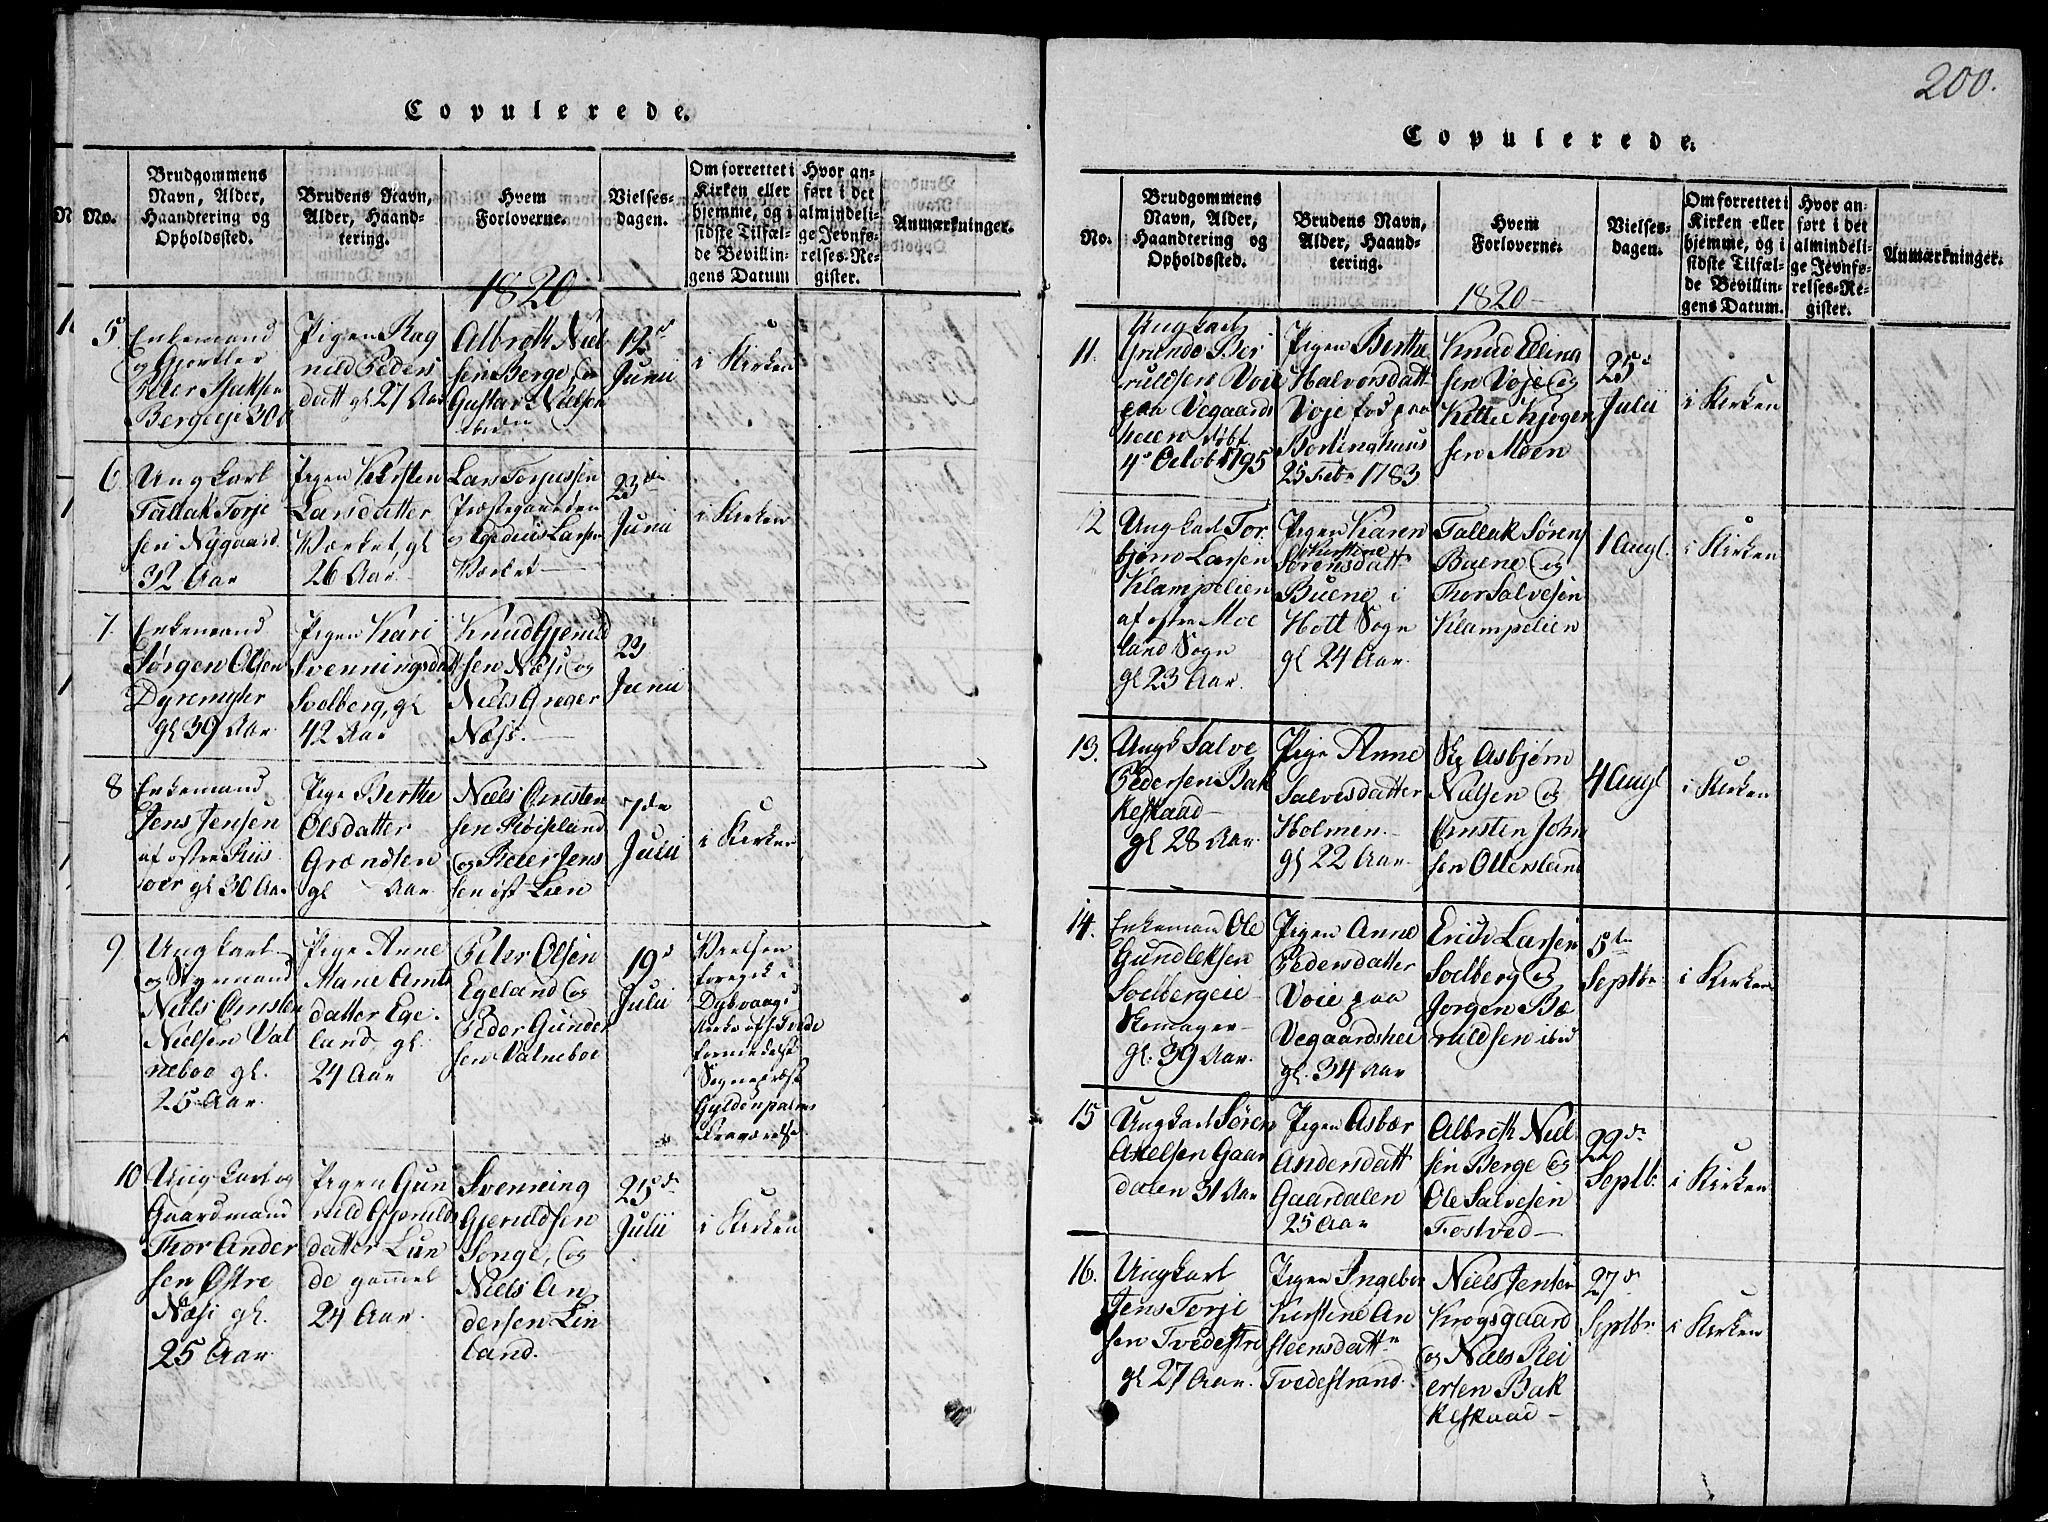 200.
Copulerede.
No.
Brudgommens
Navn, Alder,
Haandtering og
Opholdssted.
Brudens Navn,
Alder, Haand-
tering.
Hvem
Forloverne.
Vielses-
dagen.
Om forrettet i
Kirken eller
hjemme, og i
sidste Tilfæl-
de Bevillin-
gens Datum
Hvor an-
ført i det
almindeli-
ge Jevnfø-
relses-Re-
gister.
Anmærkninger.
1820
5.
Enkemand
og Gjørtler
Peter Isaksen
Berge gl 30 A
Pigen Rag
nild Peders
datt gl 27 Aar
Albrekt Niel
sen Berge, og
Gustav Nielsen
ibid
12d
Junii
i Kirken
6.
Ungkarl
Tallak Torje
sen Nygaard
32 Aar
Pigen Kirsten
Larsdatter
Værket, gl
26 Aar
Lars Torjussen
Præstegaarden
og Egedius Larsen
Værket
23de
Junii
i Kirken
7.
Enkemand
Jørgen Olsen
Dyremyhr
gl 39 Aar
Pigen Kari
Svenningsdatt
Solberg, gl
42 Aar
Knud Gjeruld
sen Næss og
Niels Greger
Næss.
23
Junii
8
Enkemand
Jens Jensen
af østre Riis
øer gl 30 Aar
Pige Berthe
Olsdatter
Grændsen
gl Aar
Niels Ørnsten
sen Røisland
og Reier Jens
sen ist Lien
7de
Julii
i Kirken
9
Ungkarl
og Styrmand
Niels Ørnsten
Nielsen Val
neboe gl.
25 Aar.
Pige Anne
Marie Amts
datter Ege-
land, gl.
24 Aar
Peter Olsen
Egeland og
Peder Gunder
sen Valneboe
19d
Julii
Vielsen
foregik i
Dybvaags
Kirke af Hr Tvede
formedelst
Sognepræst
Gyldenpalms
fraværelse
10
Ungkarl og
Gaardmand
Thor Ander
sen Østre
Næss gl.
25 Aar
Pigen Gun
nild Gjerulds
datter Lun
de gammel
24 Aar
Svenning
Gjeruldsen
Songe, og
Niels An
dersen Lin
land.
25de
Julii
i Kirken
Copulerede.
No.
Brudgommens
Navn, Alder,
Haandtering og
Opholdssted.
Brudens Navn,
Alder, Haand-
tering.
Hvem
Forloverne.
Vielses-
dagen.
Om forrettet i
Kirken eller
hjemme, og i
sidste Tilfæl-
de Bevillin-
gens Datum.
Hvor an-
ført i det
almindeli-
ge Jevnfø-
relses-Re-
gister.
Anmærkninger.
1820
11.
Ungkarl
Grunde Ber
ruldsen Voie
paa Vegaards
heien døbt
4de Octob 1795
Pigen Berthe
Halvorsdatt
Voje fød paa
Borlinghuus
25 Febr 1783
Knud Elling
sen Voje og
Kittel Kjøger
sen Moen
25d
Julii
i Kirken
12
Ungkarl Tor
bjørn Larsen
Klampelien
af østre Moe
land Sogn
gl 23 Aar.
Pigen Karen
Kirstine
Sørensdatt
Buene i
Holt Sogn
gl 24 Aar
Tallak Søren
Buene og
Thor Salvesen
Klampelien
1 Augl.
i Kirken
13.
Ungk Salve
Pedersen Bak
keskaad
gl 28 Aar
Pige Anne
Salvesdatter
Holmen
gl 22 Aar.
Asbjørn
Nielsen og
Ørnsten John
sen Ottersland
4 Augl
i Kirken
14.
Enkeman Ole
Gundleksen
Soelbergeie
Skomager
gl. 39 Aar.
Pigen Anne
Pedersdatter
Voie paa
Vegaardshei
gl. 34 Aar
Erich Larsen
Soelberg og
Jørgen Bæ
ruldsen ibid
5te
Septbr
i Kirken
15
Ungkarl Søren
Axelsen Gaar
dalen 31 Aar
Pigen Asbær
Andersdatt
Gaardalen
25 Aar
Albrekt Niel
sen Berge og
Ole Salvesen
Fostved
22de
Septb.
i Kirken
16.
Ungkarl
Jens Terje
sen Tvedestra
gl 27 Aar.
Pigen Ingebor
Kirstine An
steensdattr
Tvedestrand
Niels Jensen
Krogsgaard
og Niels Rei
ersen Bak
keskaad
27d
Septbr
i Kirken